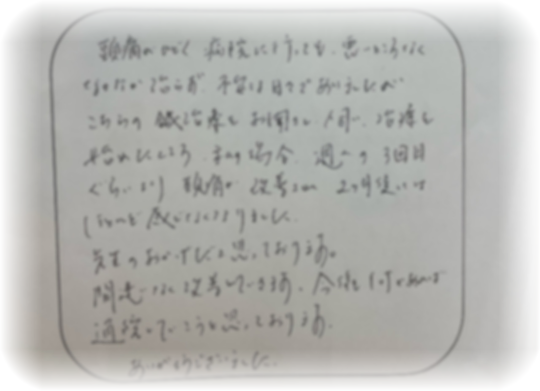 頭痛がひどく 病院に行っても、悪いところなく
なかなか治らず、不安な日々でありましたが
こちらの鍼治療を お聞きし 治療を
始めたところ、私の場合、週一の3回目
ぐらいより 頭痛が 改善され 2ヶ月後には
ほとんど感じなくなりました。
先生のおかげだと思っております。
間違いなく改善しています、今後も
通院していこうと思っております。
ありがとうございました。